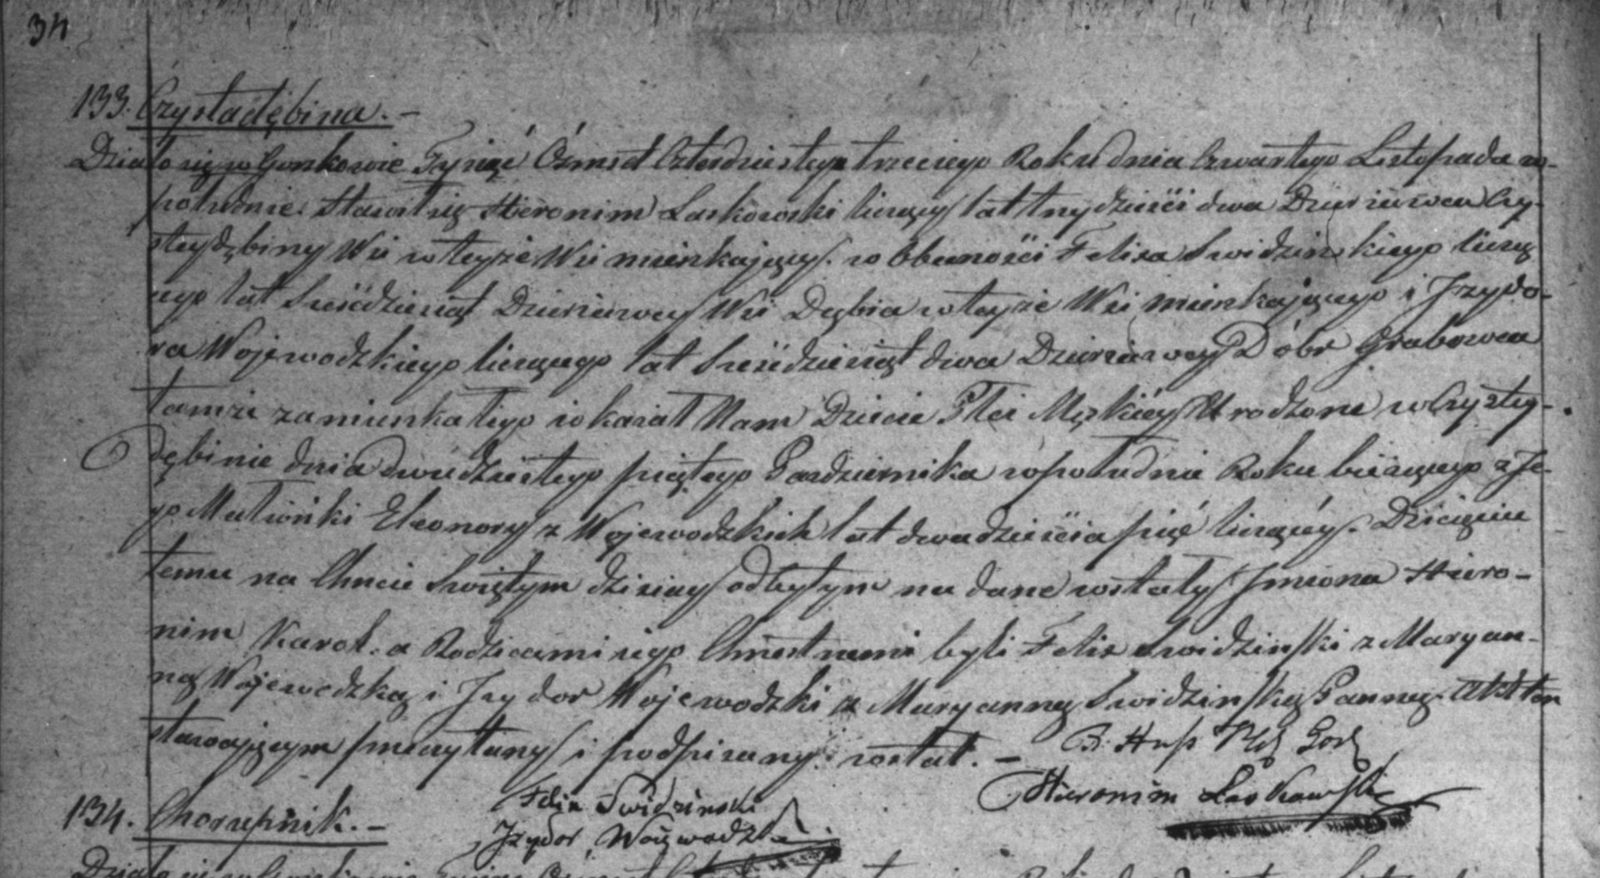 34
133. Czystadębina. –
Działo się w Gorzkowie Tysiąc Ośmset Czterdziestego trzeciego Roku dnia Czwartego Listopada w
południe. Stawił się Hieronim Laskowski liczący lat trzydzieści dwa Dzierżawca Czy-
steydębiny Wsi w teyże Wsi mieszkający. w Obecności Felixa Swidzinskiego liczą-
cego lat Sześćdziesiąt Dzierżawcy Wsi Dębia w teyże Wsi mieszkającego i Jzydo-
ra Wojewodzkiego liczącego lat Sześćdziesiąt dwa Dzierżawcy Dobr Grabowca
tamże zamieszkałego i okazał Nam Dziecie Płci Męskiéy Urodzone w Czystey-
dębinie dnia dwudziestego piątego Pazdziernika w południe Roku bieżącego z Je-
go Małżonki Eleonory z Wojewodzkich lat dwadzieścia pięć liczącéy. Dziecięciu
temu na Chrzcie Swiętym dzisiay odbytym na dane zostały Jmiona Hiero-
nim Karol. a Rodzicami iego Chrzestnemi byli Felix Swidzinski z Maryan-
ną Wojewodzką i Jzydor Wojewodzki z Maryanną Swidzinską Panną. Akt ten
stawającym przeczytany i podpisany został. –
Felix Swidzinski
Jzydor Woiewodzki
Hieronim Laskowski
134. Chorupnik. –